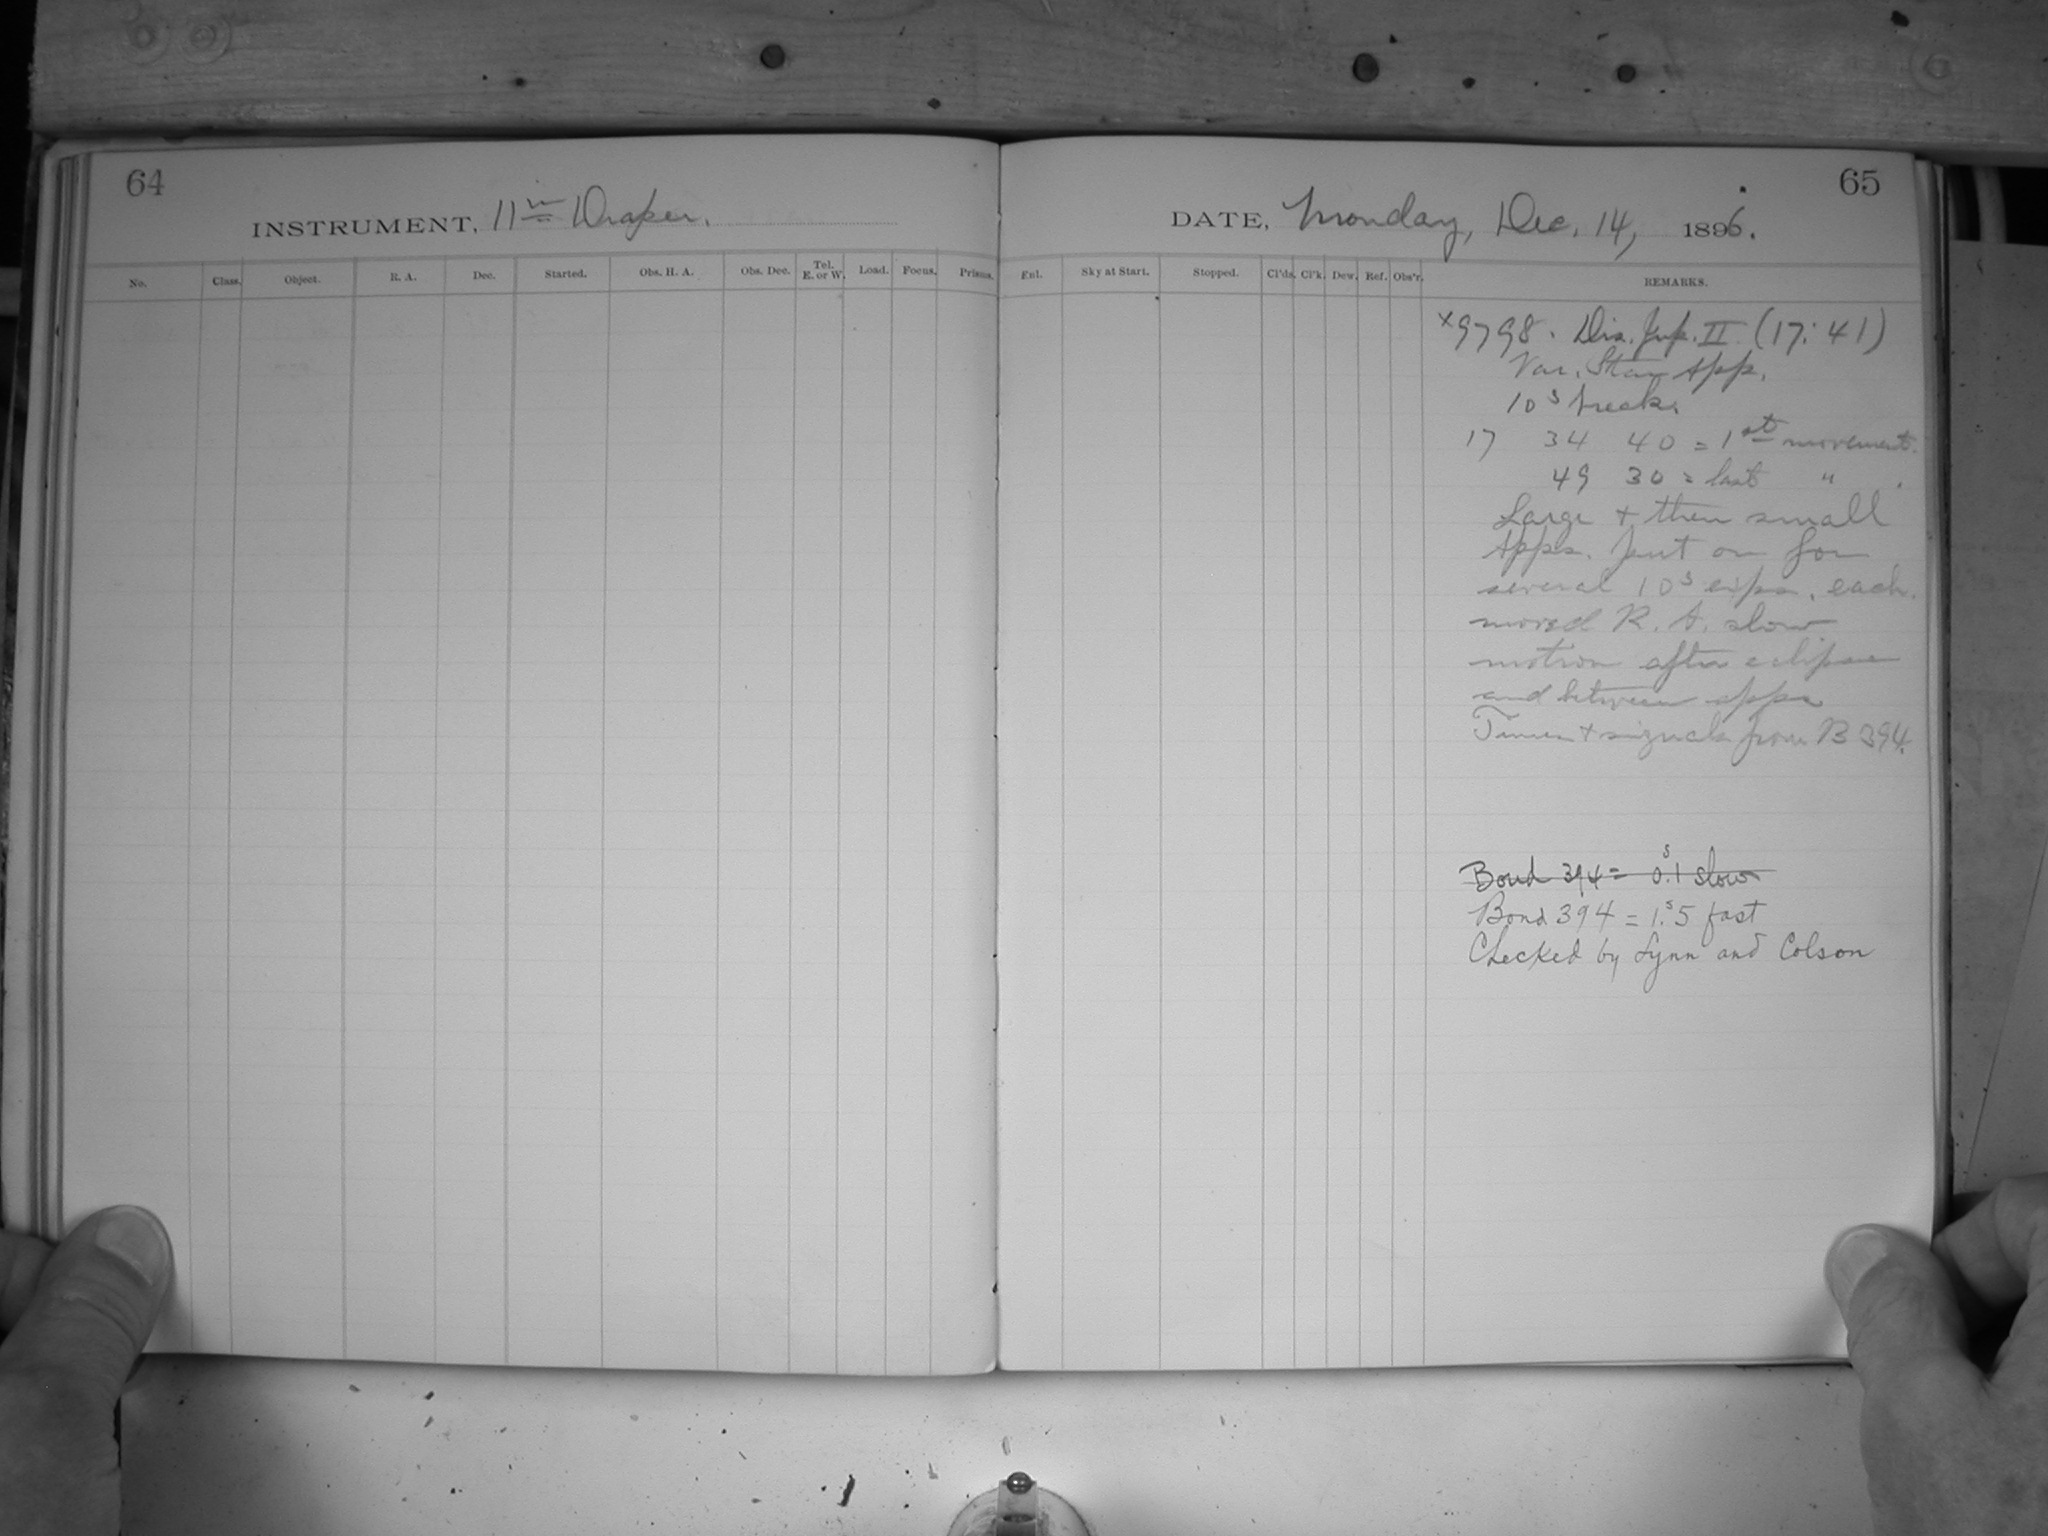 64
INSTRUMENT, 11in Draper.
No. Class. Object. R. A. Dec. Started. Obs. H. A. Obs. Dec. Tel. E. or W. Load. Focus. Prisms.
65
DATE, Monday, Dec. 14, 1896.
Ent. Sky at Start. Stopped. Cl'ds. Cl'k. Dew. Ref. Obs'r. REMARKS.
x9798. Dis. Jup. II (17:41)
Var. Star App.
10s break.
17 34 40 = 1st movement.
49 30 = last " .
Large + then small
Apps. put on for
several 10s exps. each.
moved R. A. slow
motion after eclipse
and between apps
Times + signals from B 394.
Bond 394 = 0.s1 slow
Bond 394 = 1.s5 fast
Checked by Lynn and Colson